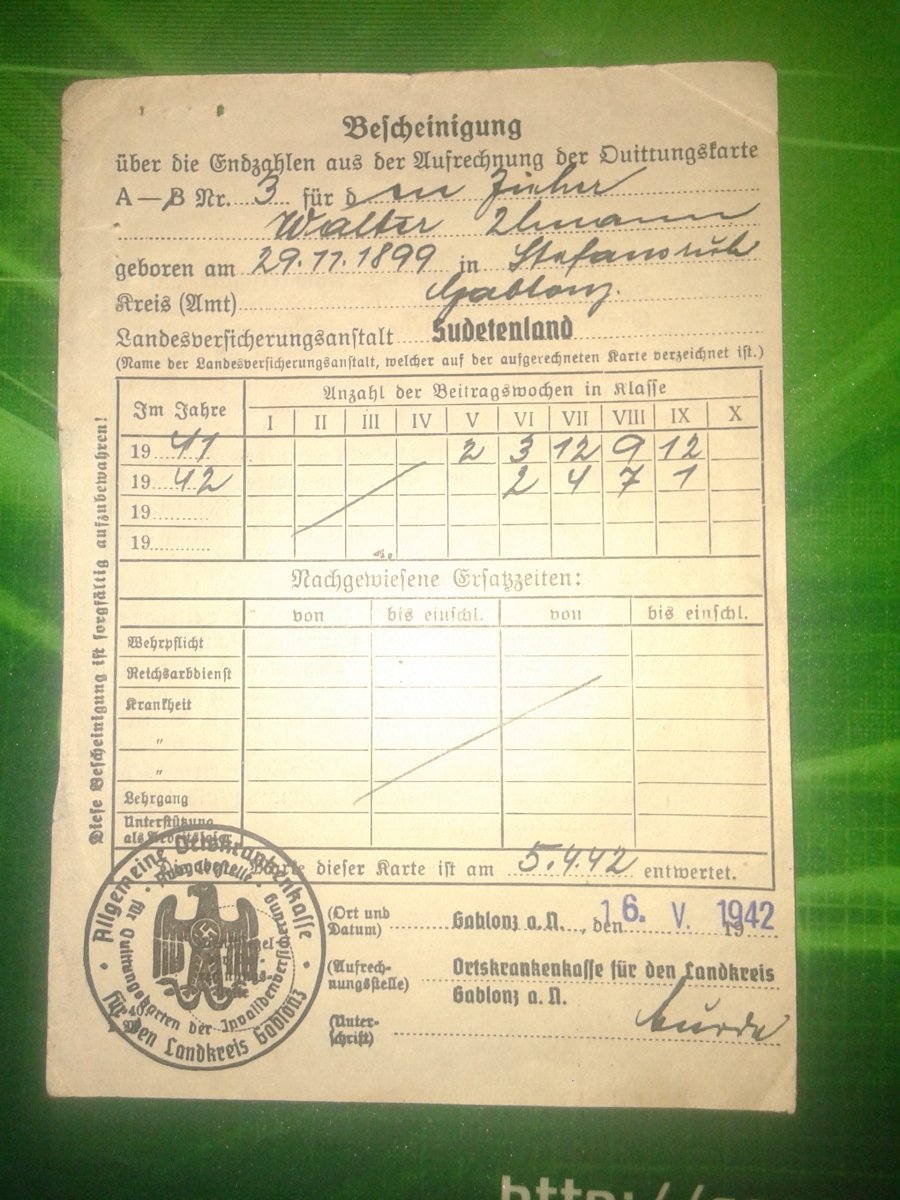 Bescheinigung
über die Endzahlen aus der Aufrechnung der Quittungskarte
A — B Nr. 3 für den Zieher
Walter Ulmann
geboren am 29.11.1899 in Stefansruh
Kreis (Amt) Gablonz.
Landesversicherungsanstalt Sudetenland
(Name der Landesversicherungsanstalt, welcher auf der aufgerechneten Karte verzeichnet ist.)
Im Jahre Anzahl der Beitragswochen in Klasse
I II III IV V VI VII VIII IX X
19 41 2 3 12 9 12
19 42 2 4 7 1
19
19
Nachgewiesene Ersatzzeiten:
von bis einschl. von bis einschl.
Wehrpflicht
Reichsarbdienst
Krankheit
"
"
Lehrgang
Unterstützung
als
Diese Bescheinigung ist sorgfältig aufzubewahren!
Marke dieser Karte ist am 5.4.42 entwertet.
(Ort und Datum) Gablonz a.N., den 16. V. 1942
19
(Aufrechnungsstelle) Ortskrankenkasse für den Landkreis
Gablonz a. N.
(Unterschrift)
Allgemeine Ortskrankenkasse für den Landkreis Gablonz
Ausgabestelle für Quittungskarten der Invalidenversicherung
http://